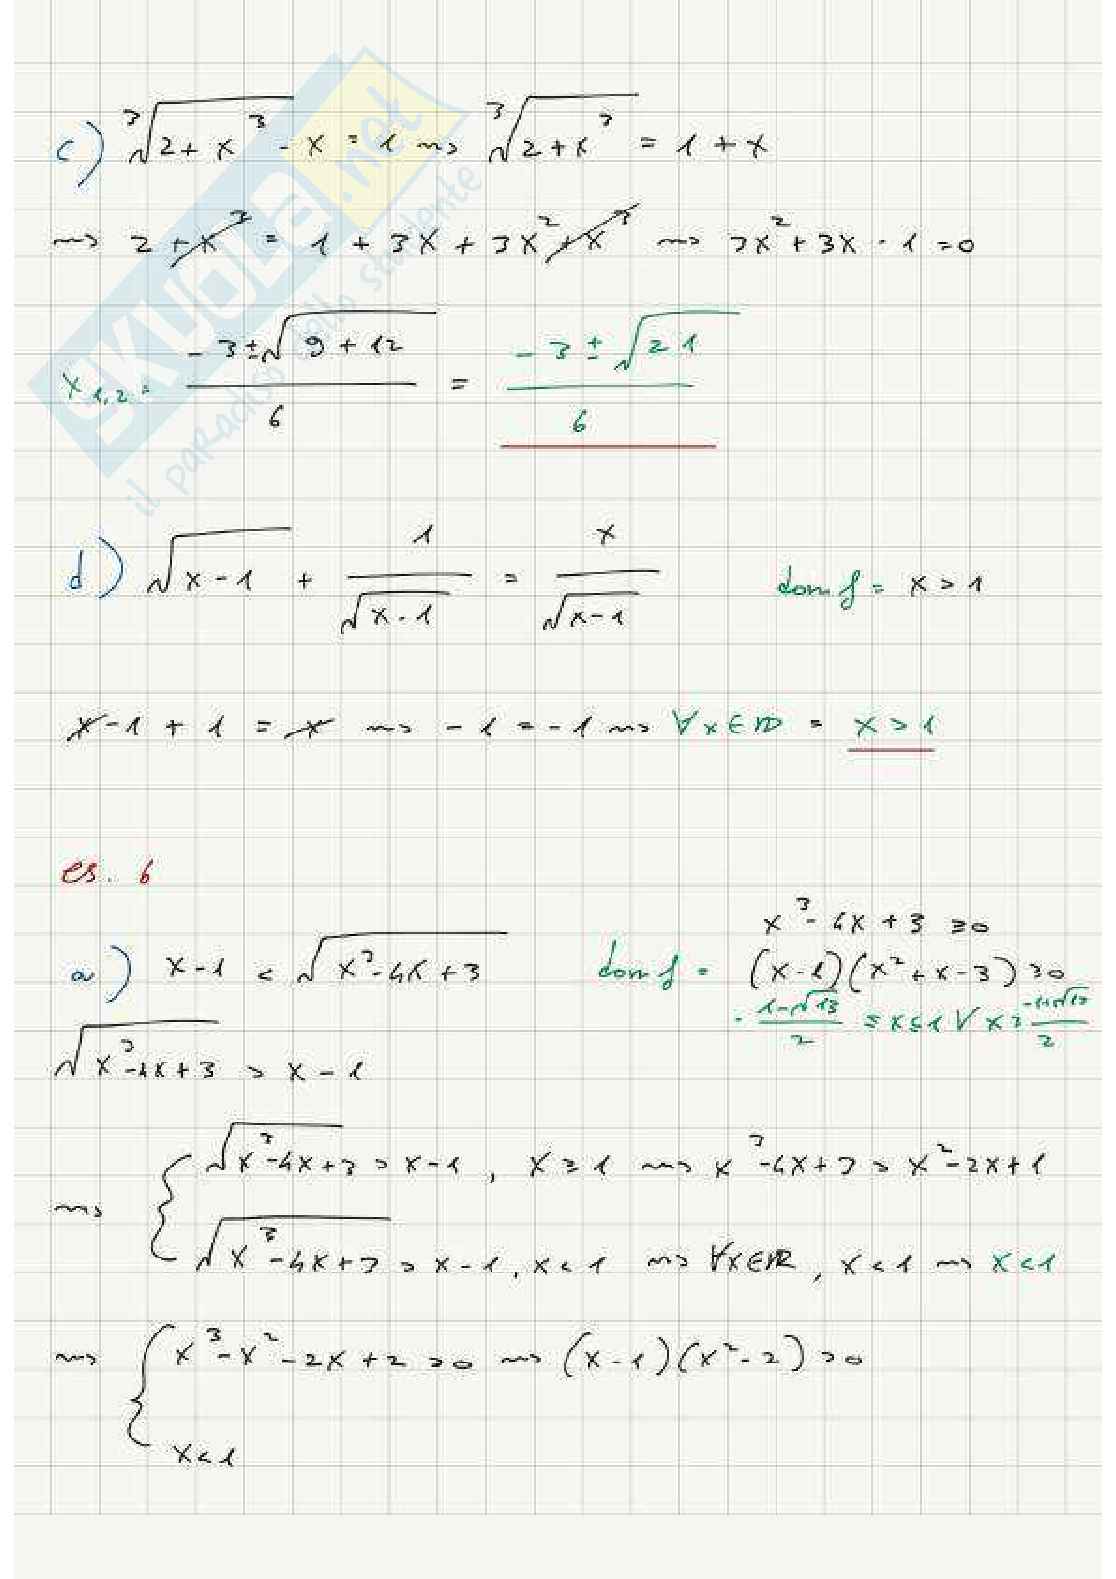 c) ∛(2+x³) - x = 1 ⇝ ∛(2+x³) = 1+x
⇝ 2+x³ = 1+3x+3x²+x³ ⇝ 3x²+3x-1=0
x₁,₂ = (-3±√(9+12))/6 = (-3±√21)/6
d) √(x-1) + 1/√(x-1) = x/√(x-1) dom f = x>1
x-1+1 = x ⇝ -1=-1 ⇝ ∀x∈D = x>1
es. 6
a) x-1 < √(x³-4x+3) dom f = x³-4x+3 ≥0
(x-1)(x²+x-3) ≥0
-(1-√13)/2 ≤ x ≤ 1 ∨ x ≥ (-1+√13)/2
√(x³-4x+3) > x-1
⇝ { √(x³-4x+3) > x-1, x≥1 ⇝ x³-4x+3 > x²-2x+1
√(x³-4x+3) > x-1, x<1 ⇝ ∀x∈ℝ, x<1 ⇝ x<1
⇝ { x³-x²-2x+2>0 ⇝ (x-1)(x²-2)>0
x<1
SKUOLA.net
il paradiso dello studente